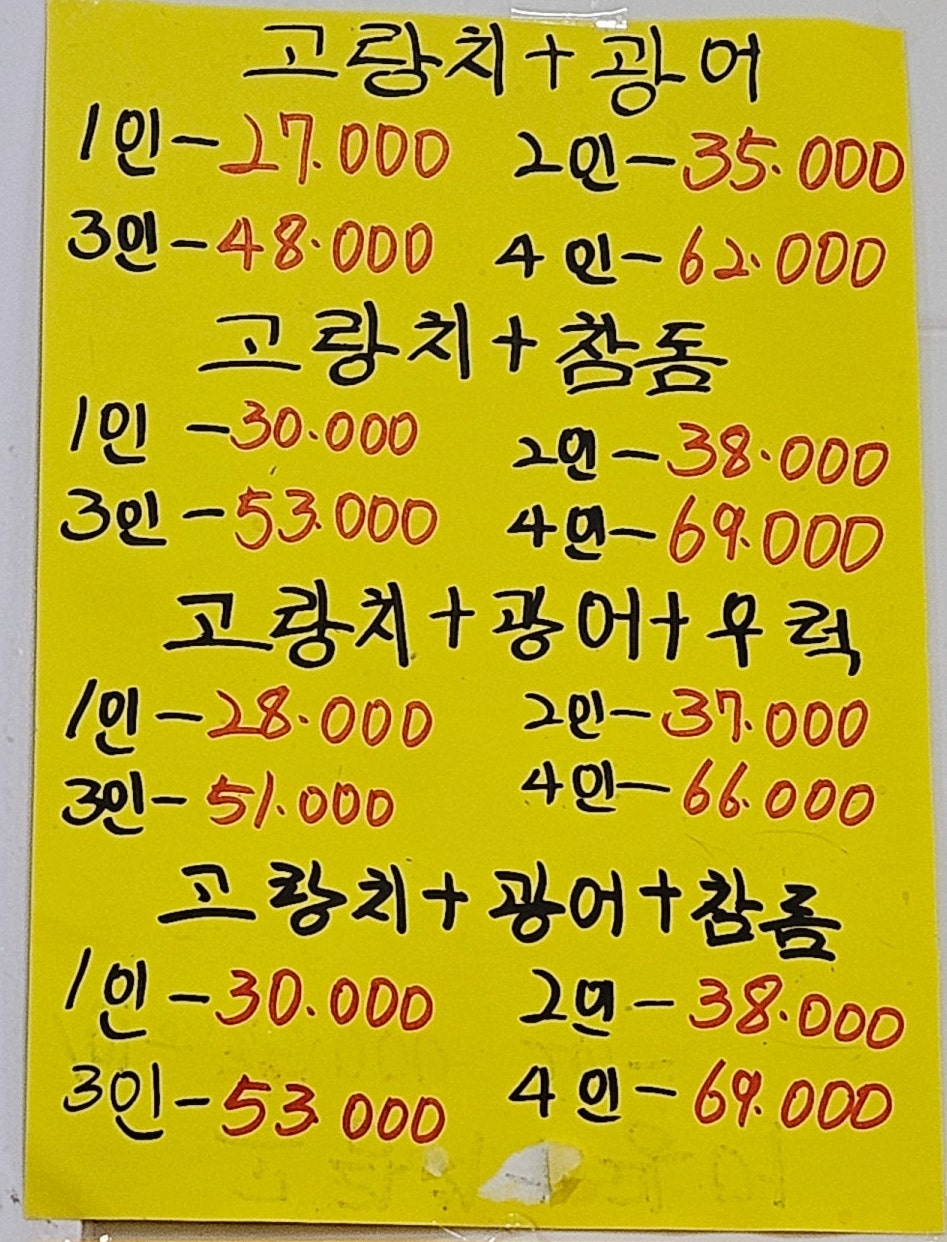 고랑치+광어
1인-27.000 2인-35.000
3인-48.000 4인-62.000
고랑치+참돔
1인-30.000 2인-38.000
3인-53.000 4인-69.000
고랑치+광어+우럭
1인-28.000 2인-37.000
3인-51.000 4인-66.000
고랑치+광어+참돔
1인-30.000 2인-38.000
3인-53.000 4인-69.000